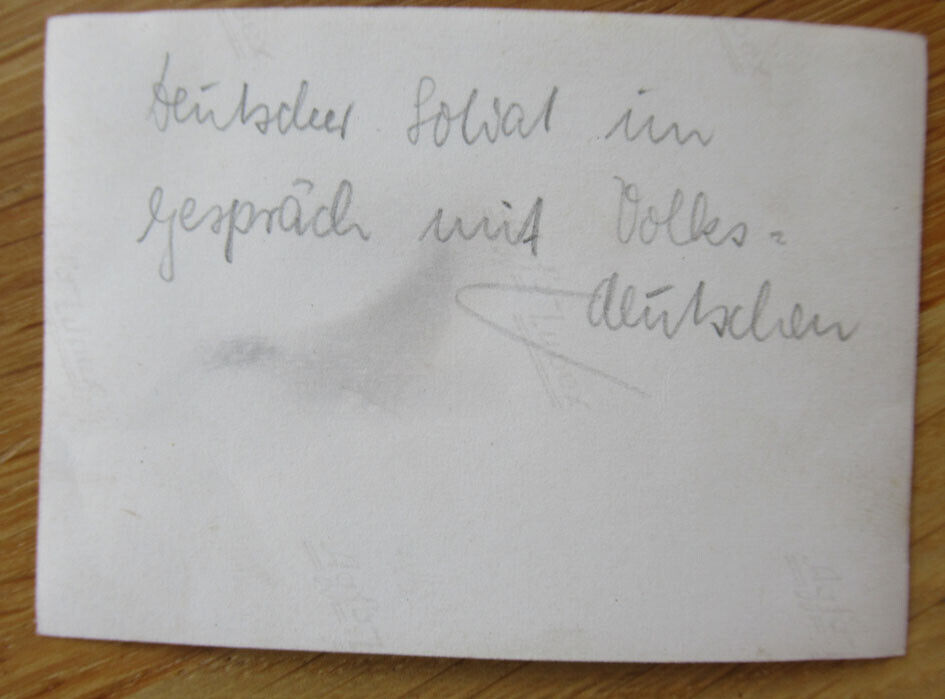 Deutscher Soldat im
Gespräch mit Volks=
deutschen